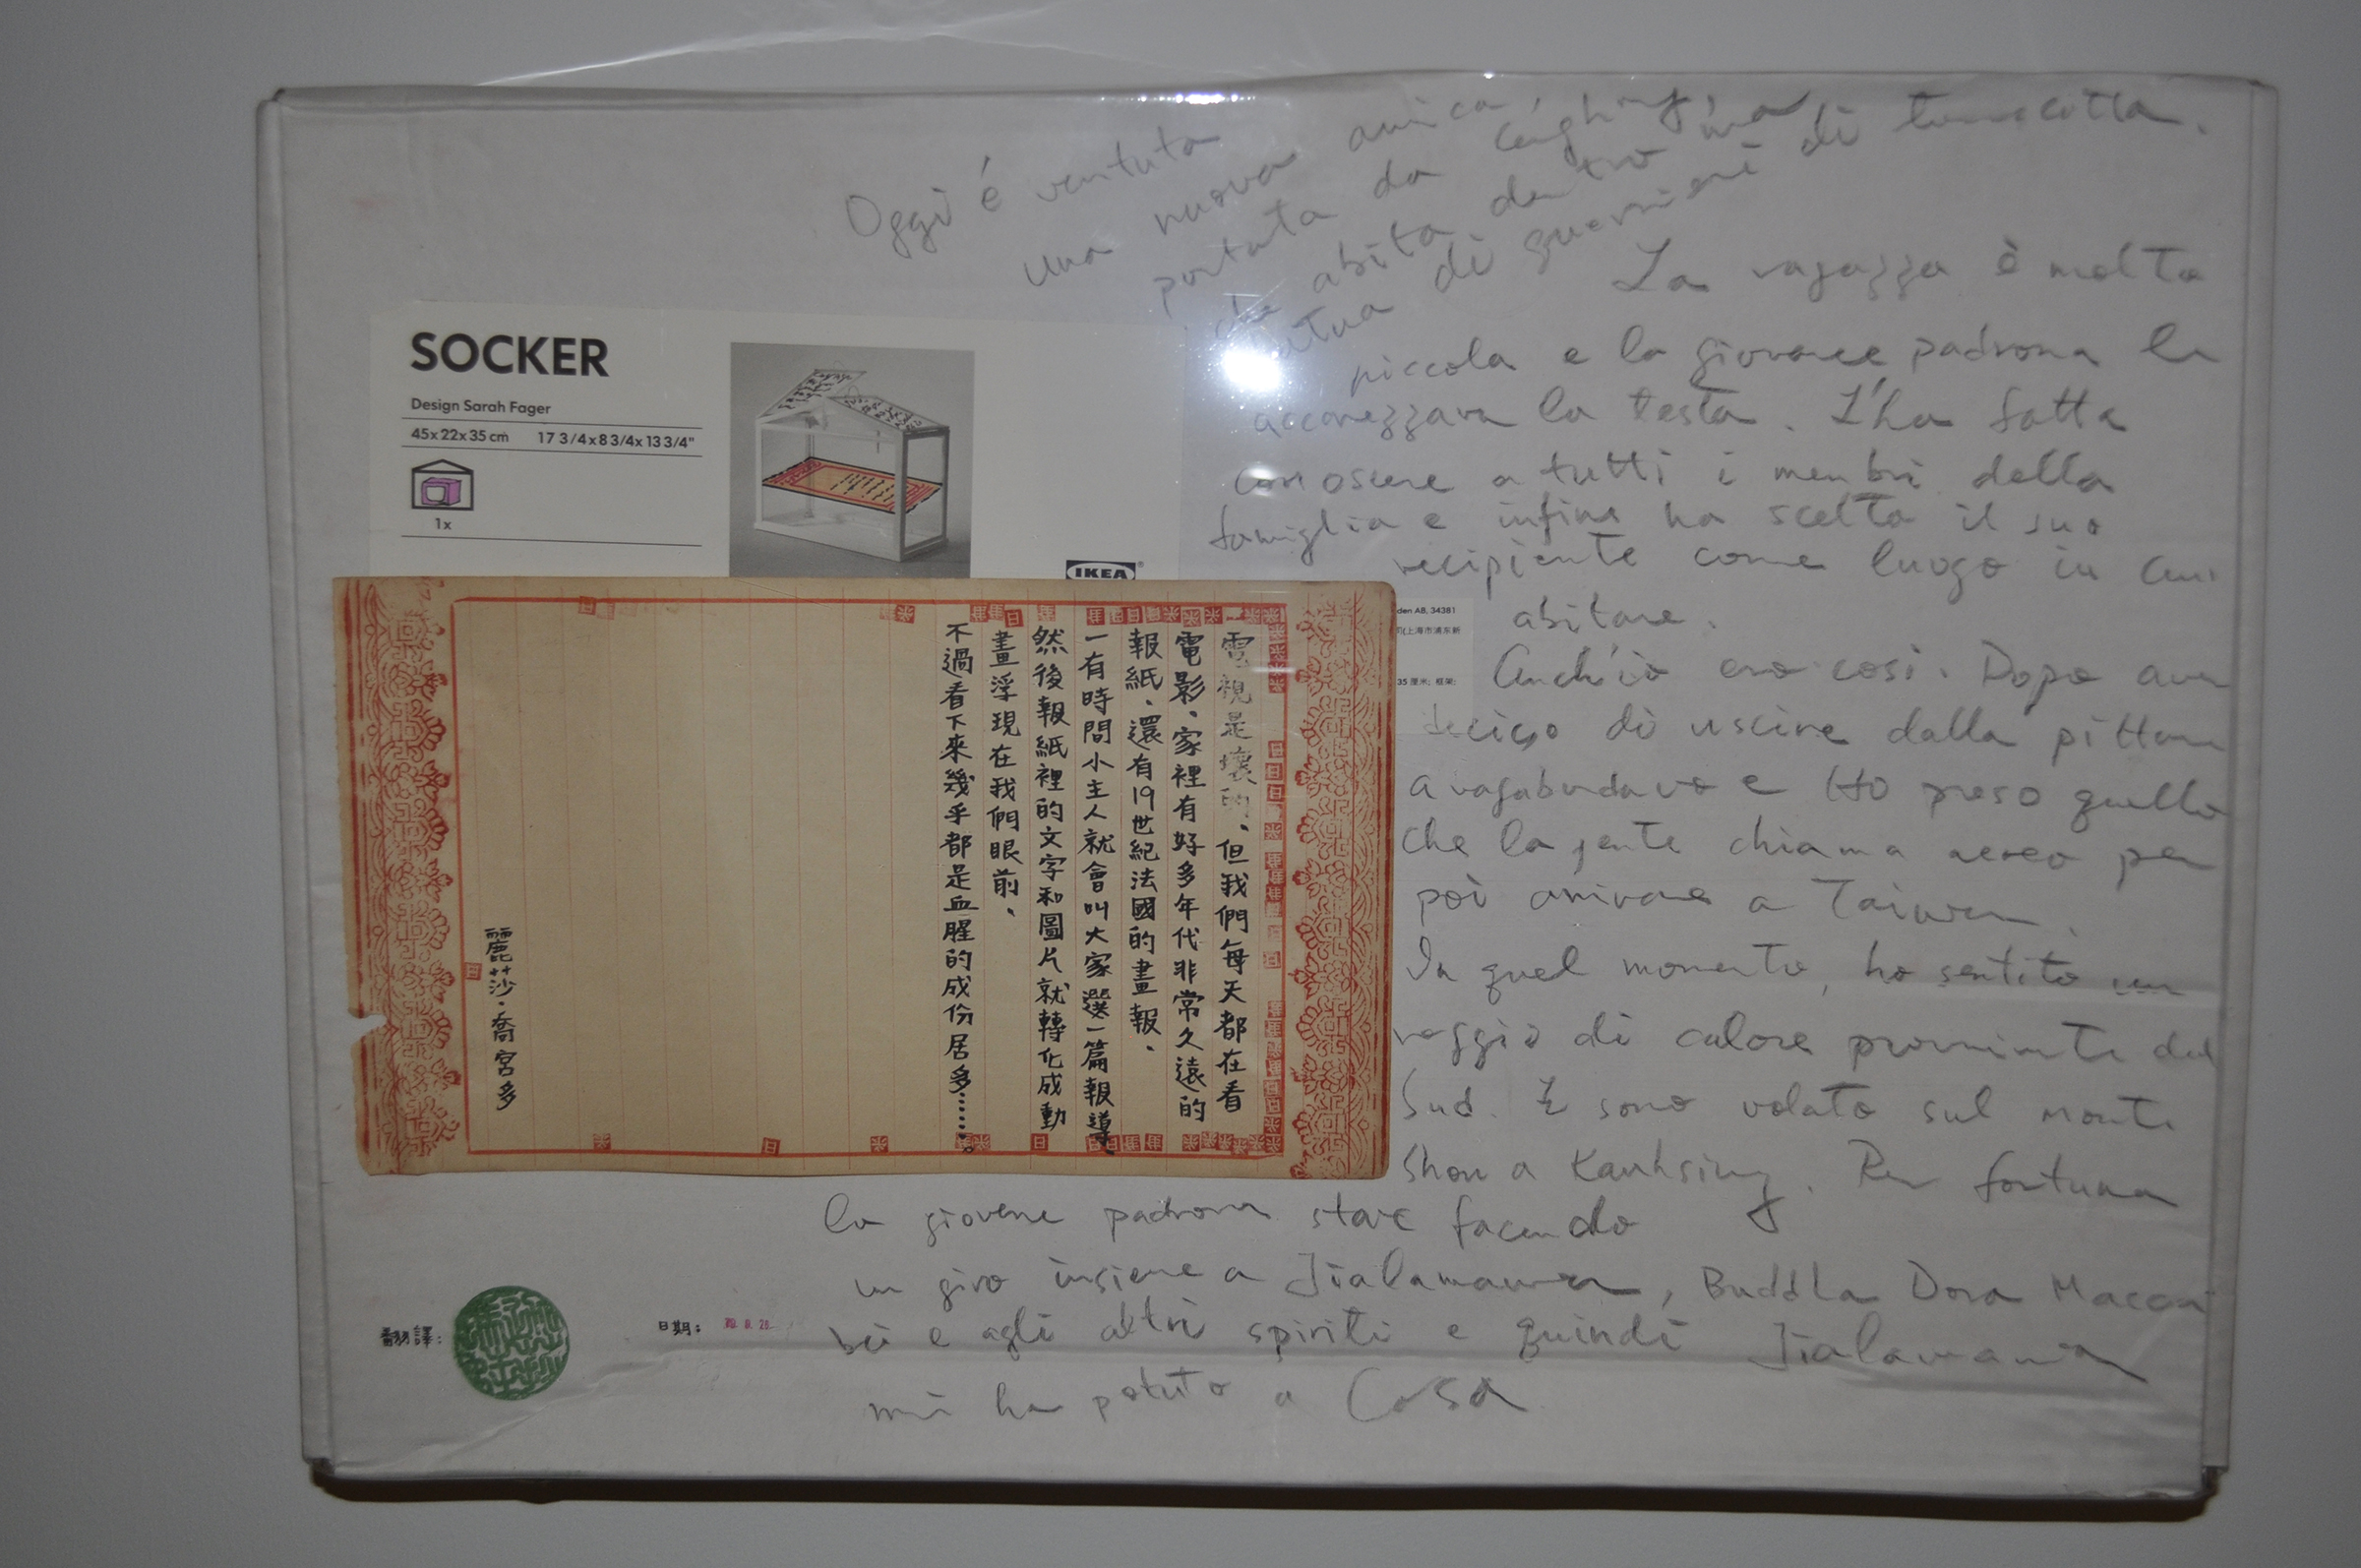 Oggi è venuta
una nuova amica,
portata da
che abita dentro una
statua di guerrieri di terracotta.
La ragazza è molto
piccola e la giovane padrona le
accarezzava la testa. L'ha fatta
conoscere a tutti i menbri della
famiglia e infine ha scelto il suo
recipiente come luogo in cui
abitare.
Anch'io ero cosi. Dopo aver
deciso di uscire dalla pittura
avagabondavo e Ho preso quello
che la gente chiama aereo per
poi arrivare a Taiwan
In quel momento, ho sentito un
raggio di calore proveniente dal
Sud. E sono volato sul monte
Shou a Kauhsiung. Per fortuna
la giovene padrona stava facendo
un giro insieme a Jialamawa, Buddha Dora
e agli altri spiriti e quindi Jialamawa
mi ha potuto a Casa
SOCKER
Design Sarah Fager
45x22x35 cm 17 3/4x8 3/4x13 3/4"
1x
IKEA
den AB, 34381
(上海市浦东新
35 厘米; 框架:
電視是壞的、但我們每天都在看
電影、家裡有好多年代非常久遠的
報紙、還有19世紀法國的畫報、
一有時間小主人就會叫大家選一篇報導、
然後報紙裡的文字和圖片就轉化成動
畫浮現在我們眼前、
不過看下來幾乎都是血腥的成份居多……。
麗莎·喬宮多
翻譯:
日期: